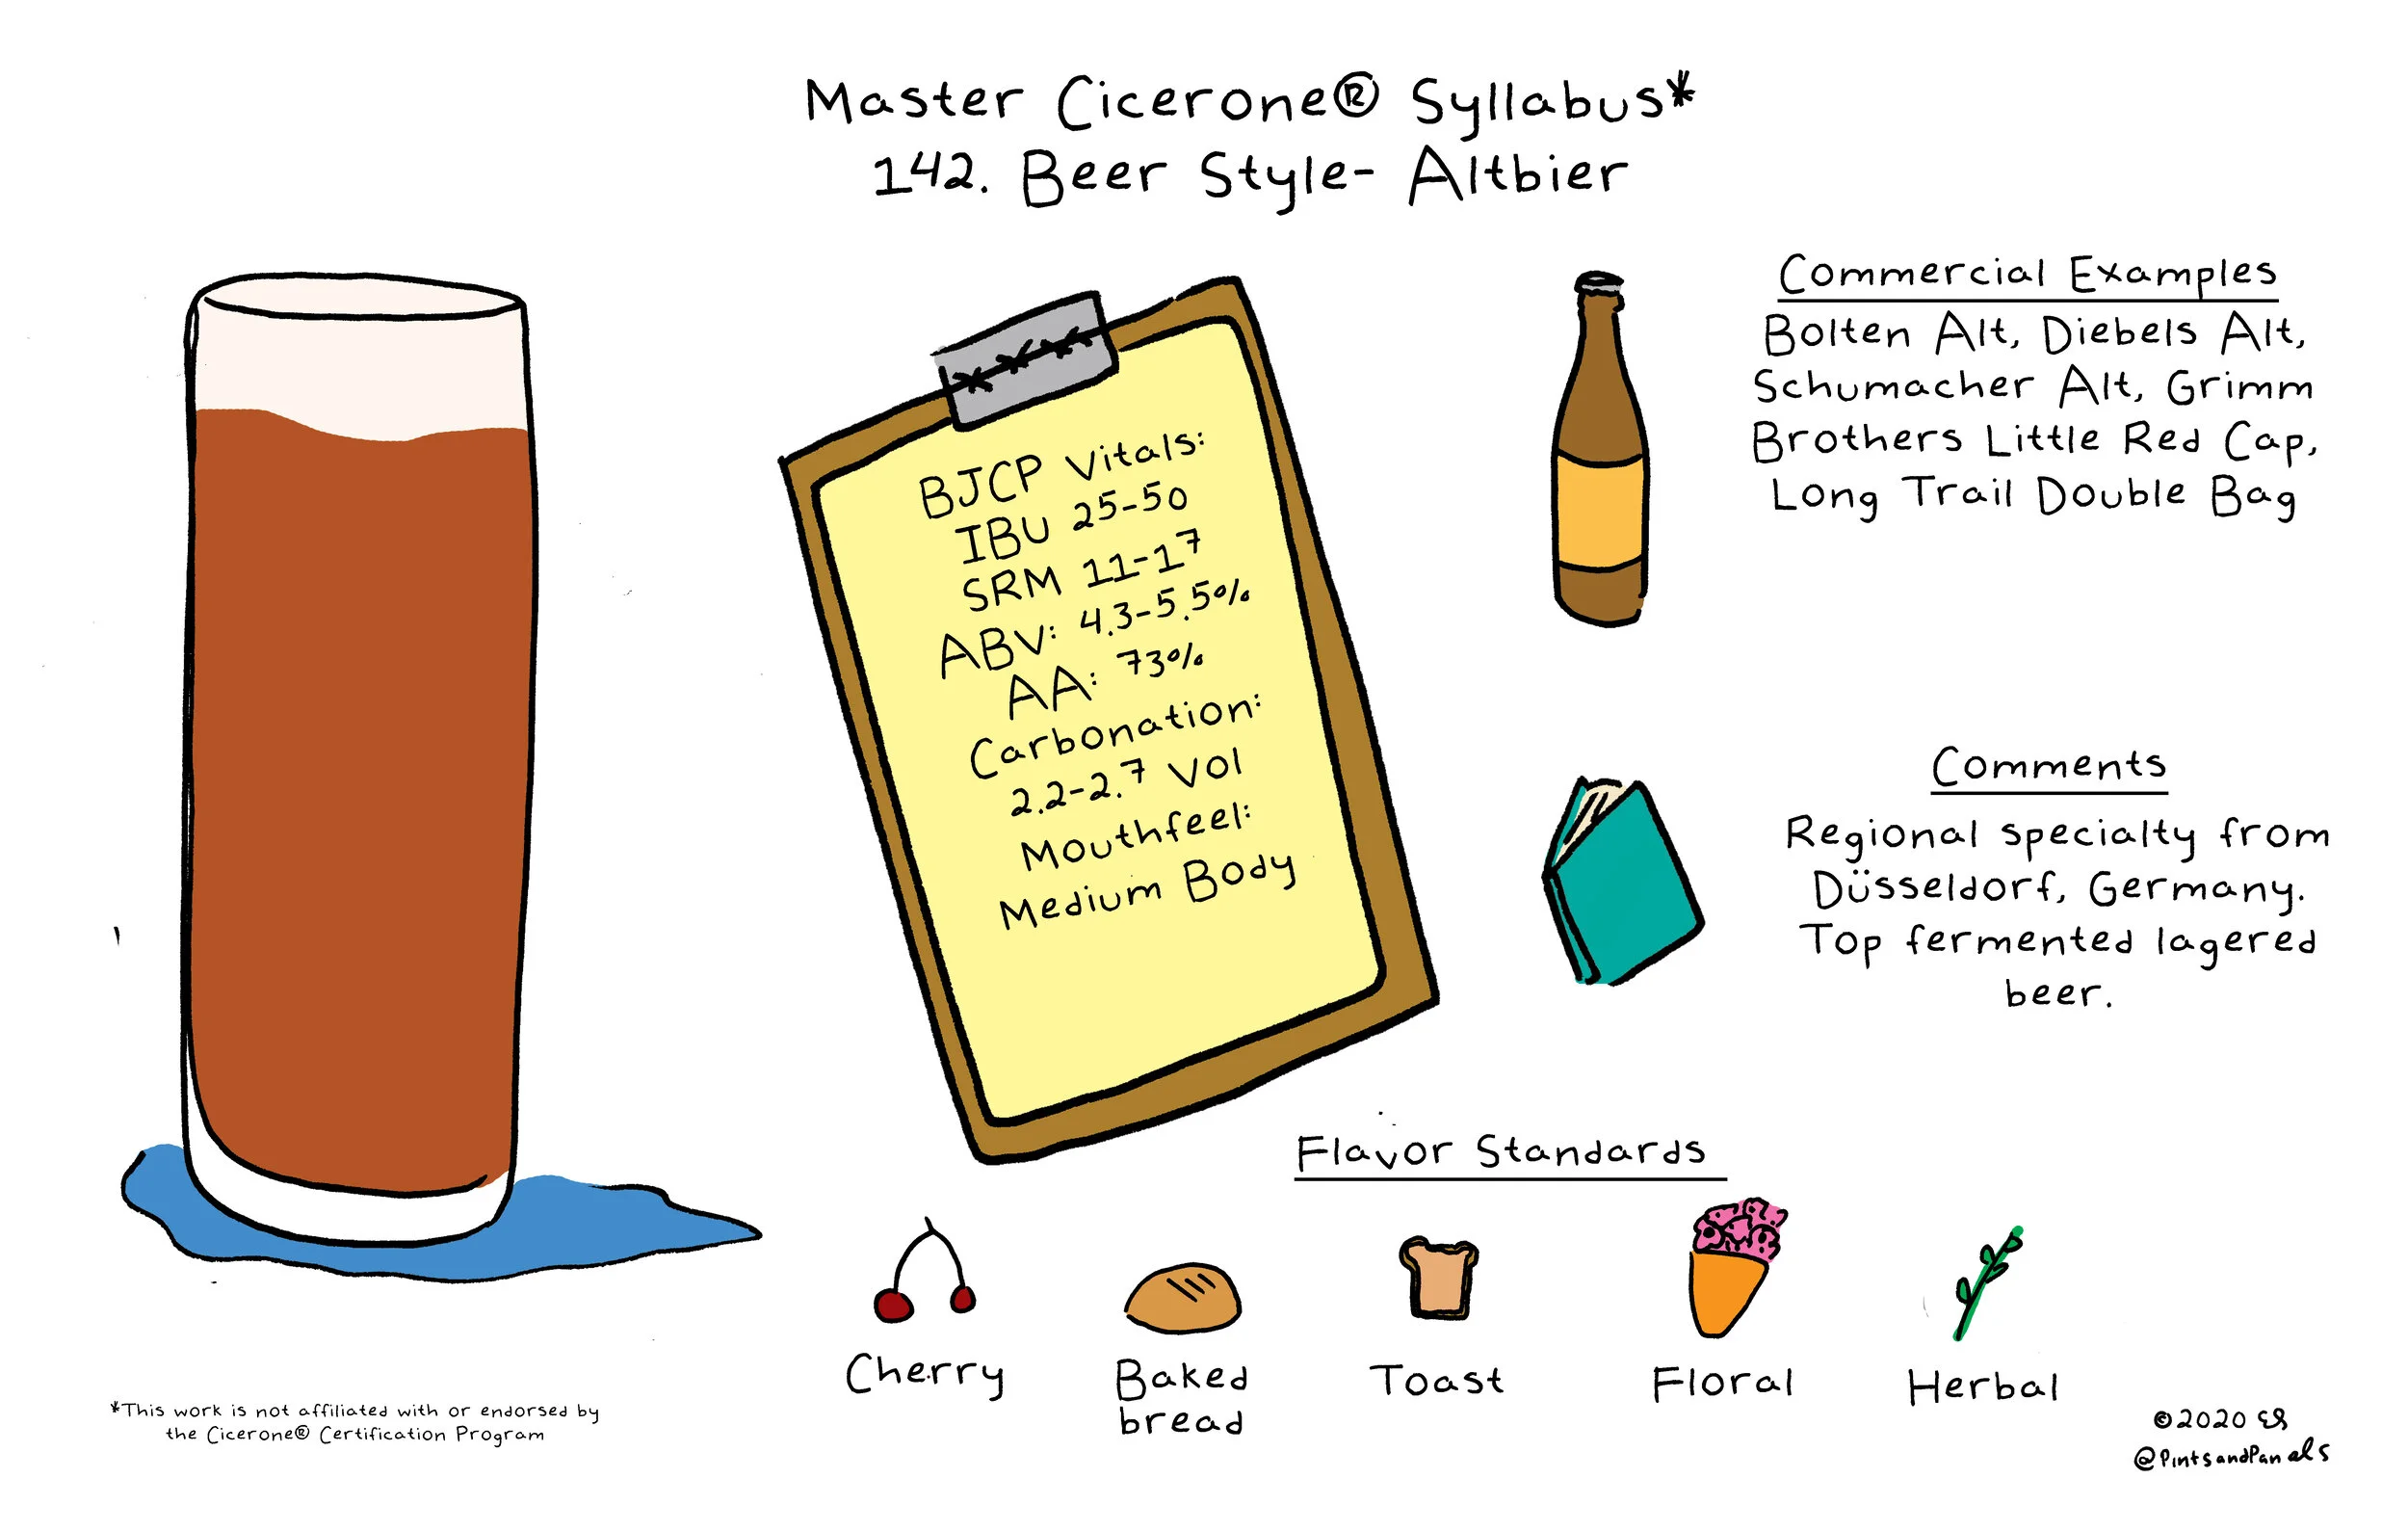 Master Cicerone® Syllabus*
142. Beer Style- Altbier
BJCP Vitals:
IBU 25-50
SRM 11-17
ABV: 4.3-5.5%
AA: 73%
Carbonation:
2.2-2.7 Vol
Mouthfeel:
Medium Body
Commercial Examples
Bolten Alt, Diebels Alt,
Schumacher Alt, Grimm
Brothers Little Red Cap,
Long Trail Double Bag
Comments
Regional specialty from
Düsseldorf, Germany.
Top fermented lagered
beer.
Flavor Standards
Cherry
Baked
bread
Toast
Floral
Herbal
*This work is not affiliated with or endorsed by
the Cicerone® Certification Program
©2020 ES
@PintsandPanels